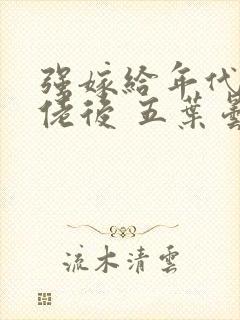 强嫁給年代
佬後 五葉
流木清雲